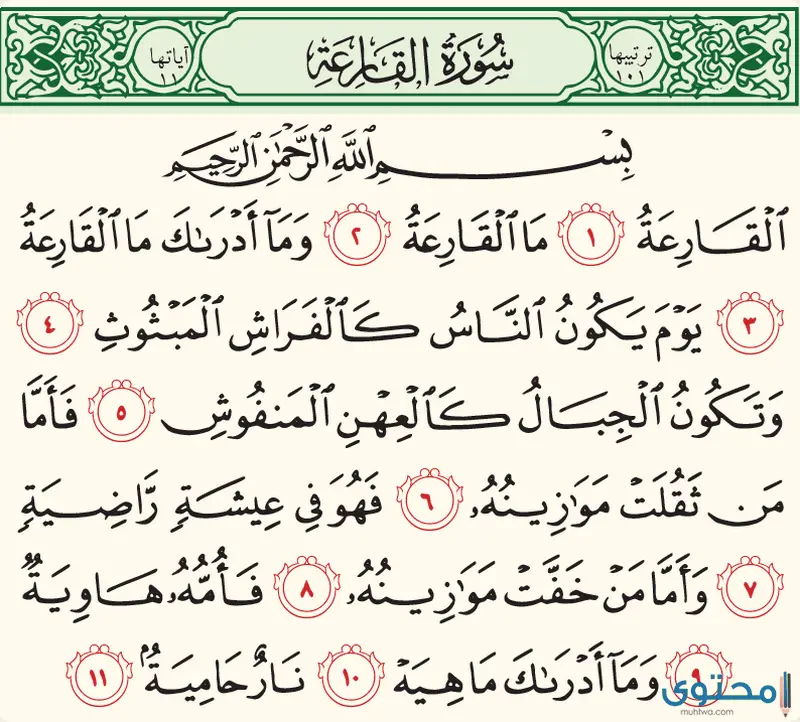 ترتيبها ١٠١ سُورَةُ القَارِعَةِ آياتها ١١
بِسْمِ ٱللَّهِ ٱلرَّحْمَٰنِ ٱلرَّحِيمِ
ٱلْقَارِعَةُ ١ مَا ٱلْقَارِعَةُ ٢ وَمَآ أَدْرَىٰكَ مَا ٱلْقَارِعَةُ
٣ يَوْمَ يَكُونُ ٱلنَّاسُ كَٱلْفَرَاشِ ٱلْمَبْثُوثِ ٤
وَتَكُونُ ٱلْجِبَالُ كَٱلْعِهْنِ ٱلْمَنفُوشِ ٥ فَأَمَّا
مَن ثَقُلَتْ مَوَٰزِينُهُۥ ٦ فَهُوَ فِى عِيشَةٍ رَّاضِيَةٍ
٧ وَأَمَّا مَنْ خَفَّتْ مَوَٰزِينُهُۥ ٨ فَأُمُّهُۥ هَاوِيَةٌ
٩ وَمَآ أَدْرَىٰكَ مَا هِيَهْ ١٠ نَارٌ حَامِيَةٌۢ ١١
محتوى
muhtwa.com